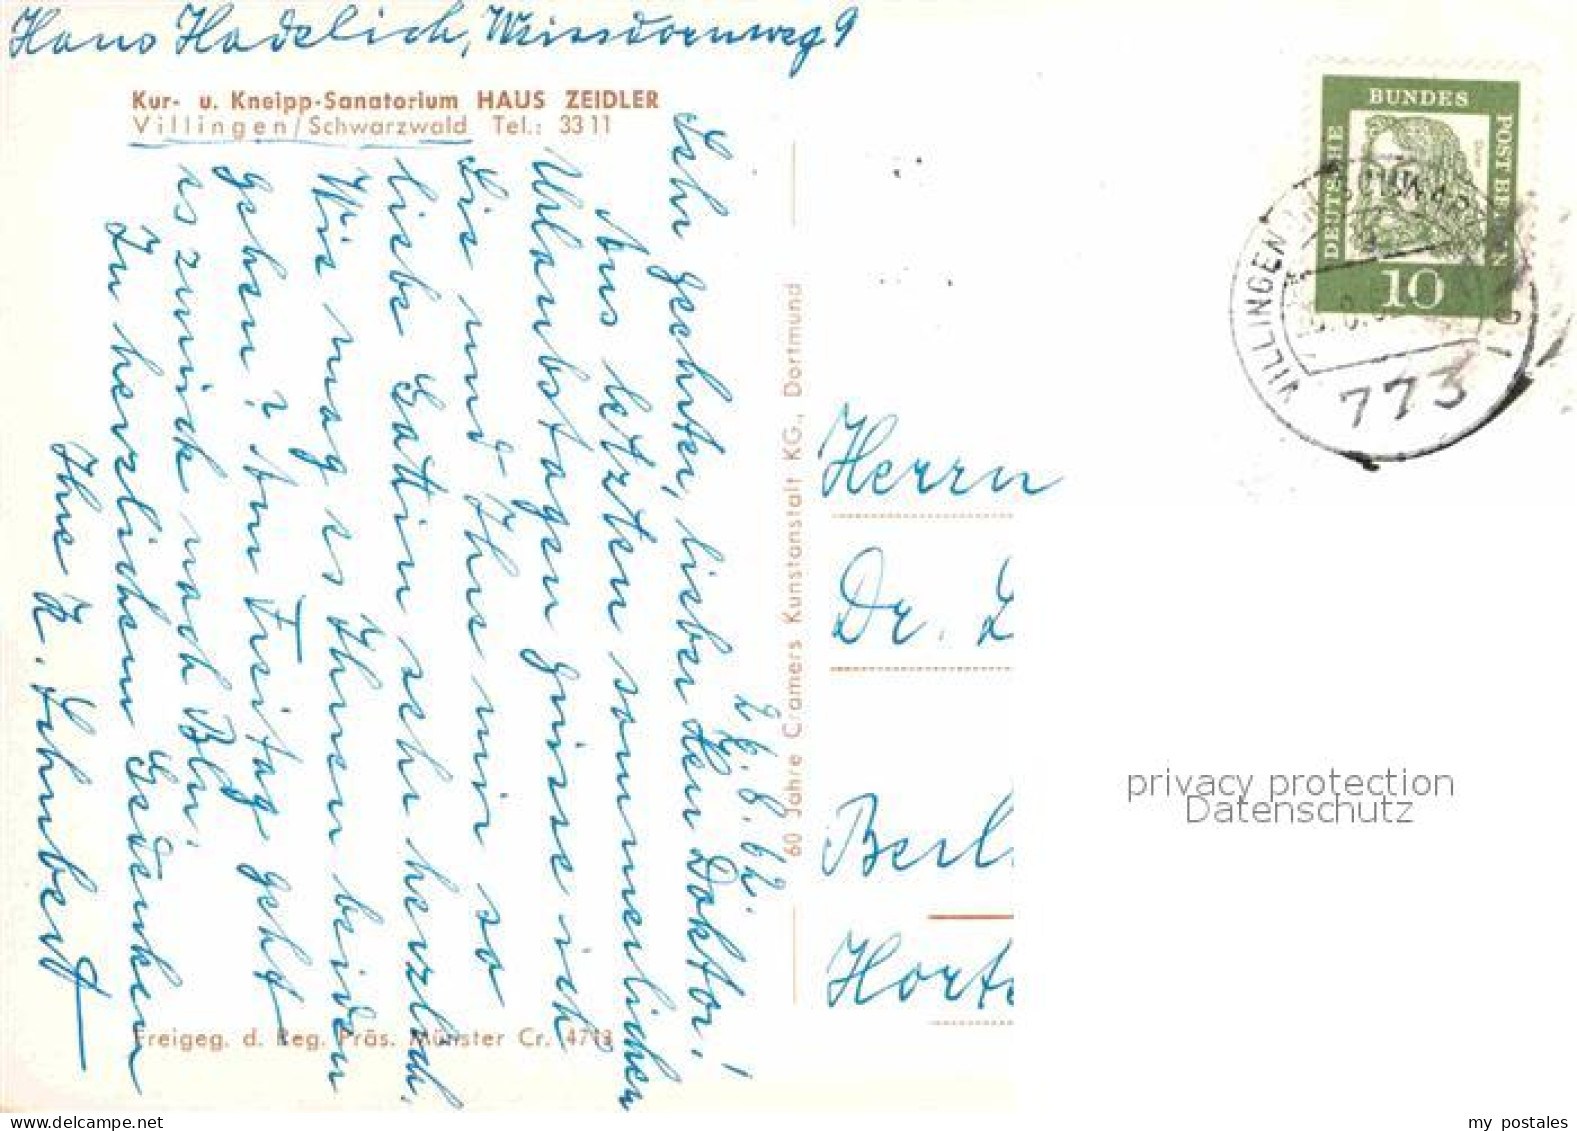 Haus Hadelich, Weissdornweg 9
Kur- u. Kneipp-Sanatorium HAUS ZEIDLER
Villingen/Schwarzwald Tel.: 33 11
26.8.62.
Sehr geehrter, lieber Herr Doktor!
Aus letzten sommerlichen
Urlaubstagen grüsse ich
Sie und Ihre mir so
liebe Gattin sehr herzlich.
Wie mag es Ihnen beiden
gehen? Am Freitag geht
es zurück nach Bln.
In herzlichem Gedenken
Ihre
60 Jahre Cramers Kunstanstalt KG., Dortmund
Freigeg. d. Reg. Präs. Münster Cr. 4713
DEUTSCHE
BUNDES
POST BERLIN
10
VILLINGEN
773
Herrn
Dr.
Berl
Hort
privacy protection
Datenschutz
my postales
www.delcampe.net